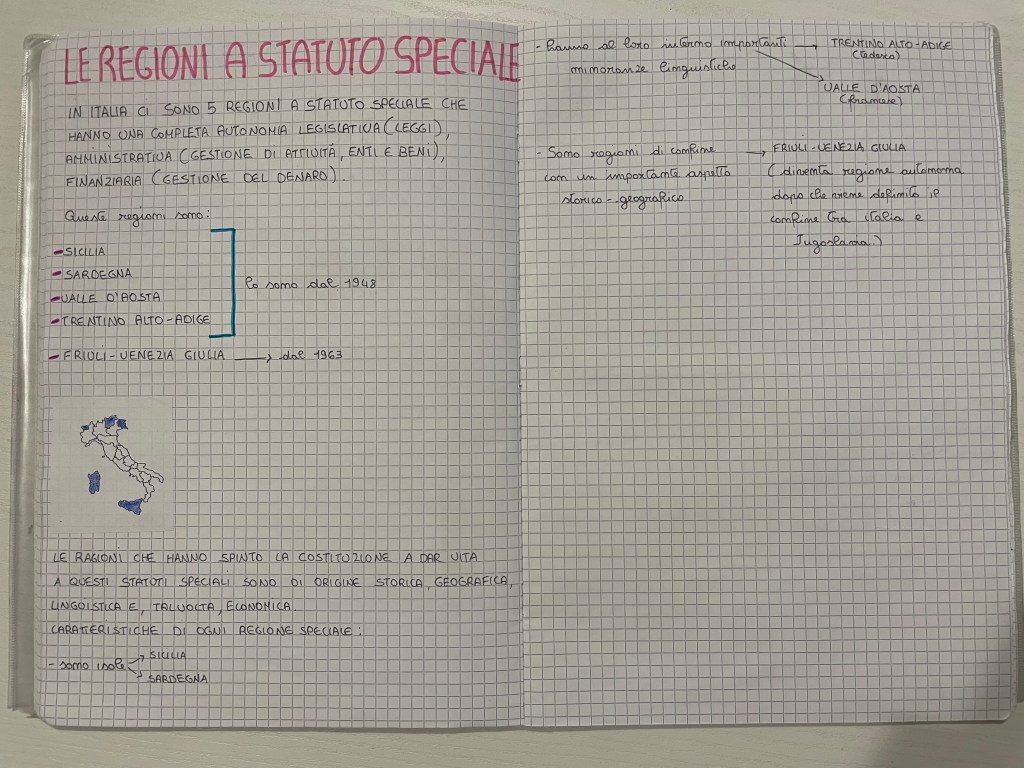 LE REGIONI A STATUTO SPECIALE
IN ITALIA CI SONO 5 REGIONI A STATUTO SPECIALE CHE
HANNO UNA COMPLETA AUTONOMIA LEGISLATIVA (LEGGI),
AMMINISTRATIVA (GESTIONE DI ATTIVITÁ, ENTI E BENI),
FINANZIARIA (GESTIONE DEL DENARO).
Queste regioni sono:
- SICILIA
- SARDEGNA
- VALLE D'AOSTA
- TRENTINO ALTO-ADIGE
lo sono dal 1948
- FRIULI-VENEZIA GIULIA → dal 1963
LE RAGIONI CHE HANNO SPINTO LA COSTITUZIONE A DAR VITA
A QUESTI STATUTI SPECIALI SONO DI ORIGINE STORICA, GEOGRAFICA,
LINGUISTICA E, TALVOLTA, ECONOMICA.
CARATTERISTICHE DI OGNI REGIONE SPECIALE:
- sono isole → SICILIA
→ SARDEGNA
- Hanno al loro interno importanti → TRENTINO ALTO-ADIGE
minoranze linguistiche (tedesco)
→ VALLE D'AOSTA
(francese)
- Sono regioni di confine → FRIULI-VENEZIA GIULIA
con un importante aspetto (diventa regione autonoma
storico-geografico dopo che viene definito il
confine tra italia e
Jugoslavia.)